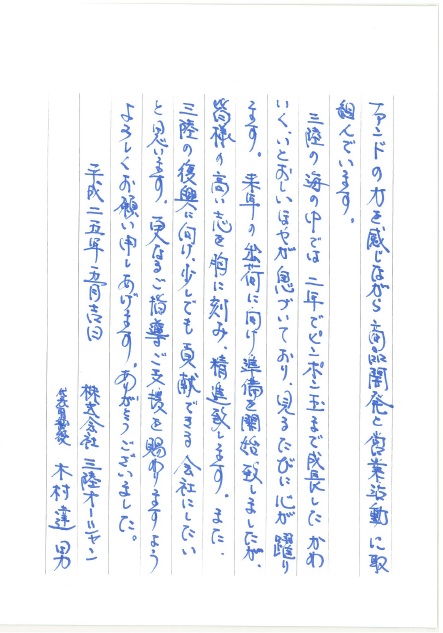 ファンドの力を感じながら商品開発と営業活動に取
組んでいます。
三陸の海の中では二年でピンポン玉まで成長したかわ
いく、いとおしいほやが息づいており、見るたびに心が躍り
ます。来年の出荷に向け準備を開始致しましたが、
皆様の高い志を胸に刻み、精進致します。また、
三陸の復興に向け、少しでも貢献できる会社にしたい
と思います。更なるご指導ご支援を賜わりますよう
よろしくお願い申しあげます。ありがとうございました。
平成二五年五月吉日
株式会社三陸オーシャン
代表取締役 木村達男